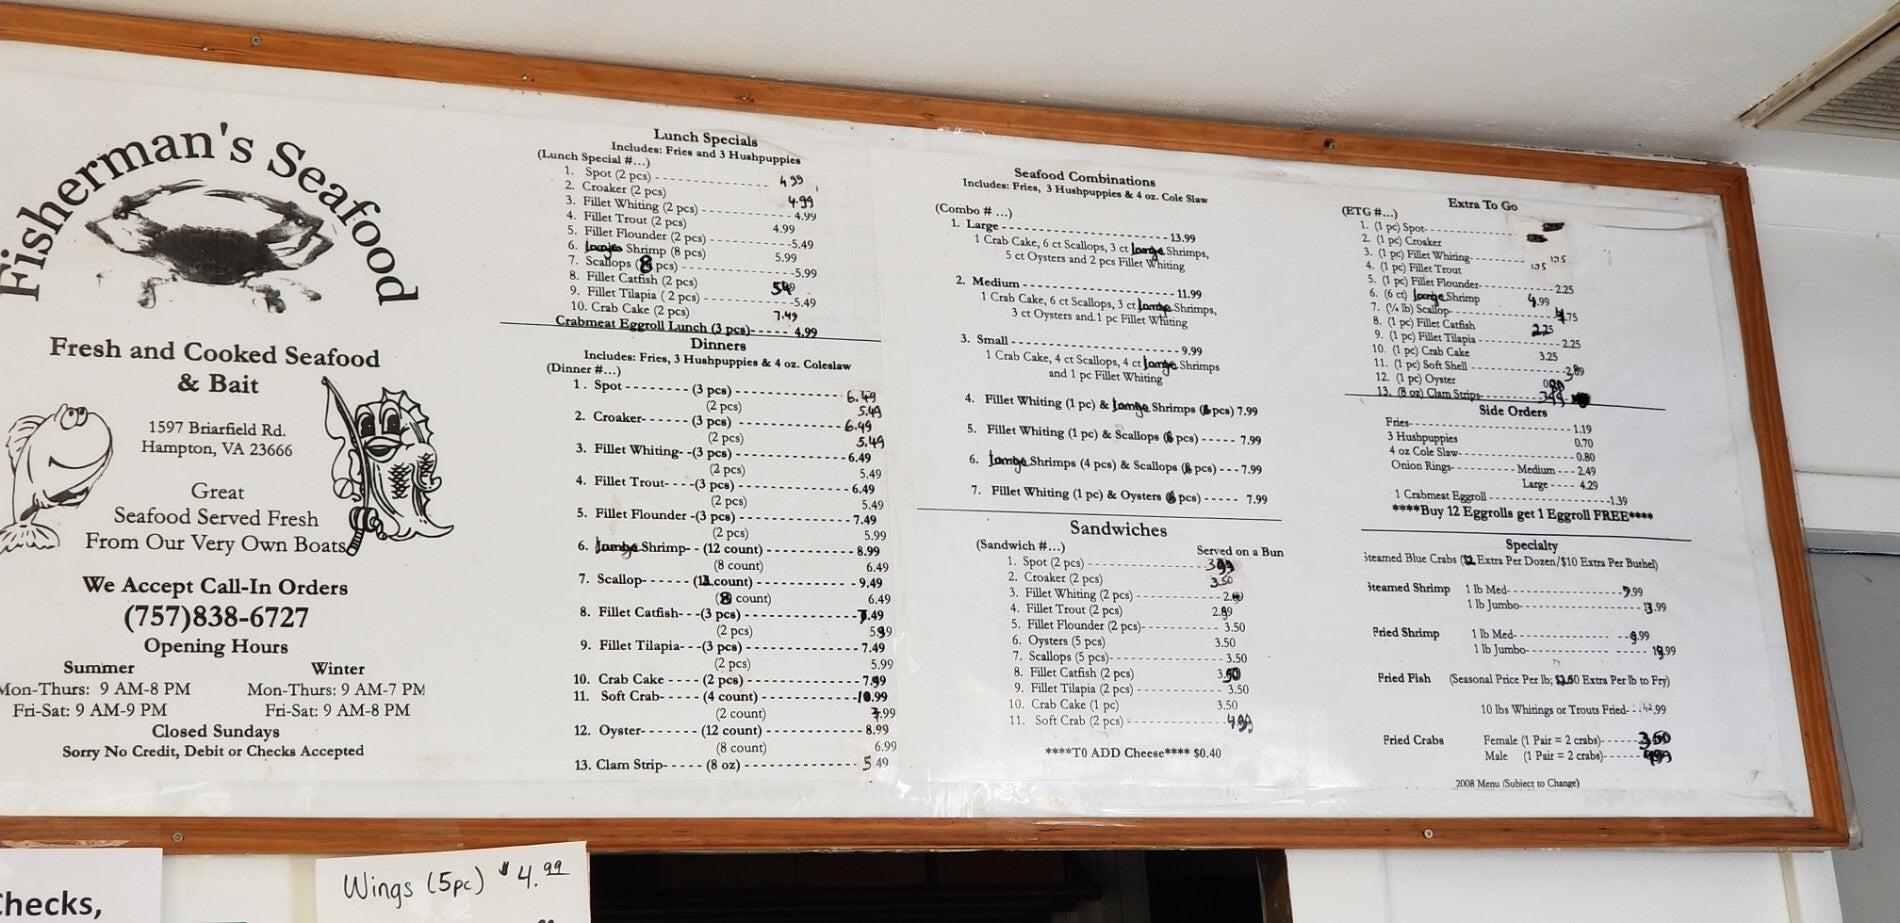 Fisherman's Seafood
Fresh and Cooked Seafood
& Bait
1597 Briarfield Rd.
Hampton, VA 23666
Great
Seafood Served Fresh
From Our Very Own Boats
We Accept Call-In Orders
(757)838-6727
Opening Hours
Summer
Mon-Thurs: 9 AM-8 PM
Fri-Sat: 9 AM-9 PM
Winter
Mon-Thurs: 9 AM-7 PM
Fri-Sat: 9 AM-8 PM
Closed Sundays
Sorry No Credit, Debit or Checks Accepted
Lunch Specials
Includes: Fries and 3 Hushpuppies
(Lunch Special #...)
1. Spot (2 pcs) 4.99
2. Croaker (2 pcs) 4.99
3. Fillet Whiting (2 pcs) 4.99
4. Fillet Trout (2 pcs) 4.99
5. Fillet Flounder (2 pcs) 5.49
6. Large Shrimp (8 pcs) 5.99
7. Scallops (8 pcs) 5.99
8. Fillet Catfish (2 pcs)
9. Fillet Tilapia (2 pcs) 5.49
10. Crab Cake (2 pcs) 7.49
Crabmeat Eggroll Lunch (3 pcs) 4.99
Dinners
Includes: Fries, 3 Hushpuppies & 4 oz. Coleslaw
(Dinner #...)
1. Spot (3 pcs) 6.49
(2 pcs) 5.49
2. Croaker (3 pcs) 6.49
(2 pcs) 5.49
3. Fillet Whiting (3 pcs) 6.49
(2 pcs) 5.49
4. Fillet Trout (3 pcs) 6.49
(2 pcs) 5.49
5. Fillet Flounder (3 pcs) 7.49
(2 pcs) 5.99
6. Large Shrimp (12 count) 8.99
(8 count) 6.49
7. Scallop (count) 9.49
(8 count) 6.49
8. Fillet Catfish (3 pcs) 7.49
(2 pcs)
9. Fillet Tilapia (3 pcs) 7.49
(2 pcs) 5.99
10. Crab Cake (2 pcs) 7.99
11. Soft Crab (4 count) 10.99
(2 count) 7.99
12. Oyster (12 count) 8.99
(8 count) 6.99
13. Clam Strip (8 oz) 5.49
Seafood Combinations
Includes: Fries, 3 Hushpuppies & 4 oz. Cole Slaw
(Combo # ...)
1. Large 13.99
1 Crab Cake, 6 ct Scallops, 3 ct Large Shrimps,
5 ct Oysters and 2 pcs Fillet Whiting
2. Medium 11.99
1 Crab Cake, 6 ct Scallops, 3 ct Large Shrimps,
3 ct Oysters and 1 pc Fillet Whiting
3. Small 9.99
1 Crab Cake, 4 ct Scallops, 4 ct Large Shrimps
and 1 pc Fillet Whiting
4. Fillet Whiting (1 pc) & Large Shrimps (6 pcs) 7.99
5. Fillet Whiting (1 pc) & Scallops (6 pcs) 7.99
6. Large Shrimps (4 pcs) & Scallops (6 pcs) 7.99
7. Fillet Whiting (1 pc) & Oysters (6 pcs) 7.99
Sandwiches
(Sandwich #...) Served on a Bun
1. Spot (2 pcs)
2. Croaker (2 pcs) 3.50
3. Fillet Whiting (2 pcs)
4. Fillet Trout (2 pcs)
5. Fillet Flounder (2 pcs) 3.50
6. Oysters (5 pcs) 3.50
7. Scallops (5 pcs) 3.50
8. Fillet Catfish (2 pcs) 3.50
9. Fillet Tilapia (2 pcs) 3.50
10. Crab Cake (1 pc) 3.50
11. Soft Crab (2 pcs) 4.99
****TO ADD Cheese**** $0.40
Extra To Go
(ETG #...)
1. (1 pc) Spot
2. (1 pc) Croaker
3. (1 pc) Fillet Whiting
4. (1 pc) Fillet Trout
5. (1 pc) Fillet Flounder 2.25
6. (6 ct) Large Shrimp 4.99
7. (¼ lb) Scallop 4.75
8. (1 pc) Fillet Catfish 2.25
9. (1 pc) Fillet Tilapia 2.25
10. (1 pc) Crab Cake 3.25
11. (1 pc) Soft Shell
12. (1 pc) Oyster
13. (8 oz) Clam Strips 3.99
Side Orders
Fries 1.19
3 Hushpuppies 0.70
4 oz Cole Slaw 0.80
Onion Rings Medium 2.49
Large 4.29
1 Crabmeat Eggroll 1.39
****Buy 12 Eggrolls get 1 Eggroll FREE****
Specialty
Steamed Blue Crabs ($2 Extra Per Dozen/$10 Extra Per Bushel)
Steamed Shrimp 1 lb Med 9.99
1 lb Jumbo 13.99
Fried Shrimp 1 lb Med 9.99
1 lb Jumbo
Fried Fish (Seasonal Price Per lb; Extra Per lb to Fry)
10 lbs Whitings or Trouts Fried 42.99
Fried Crabs Female (1 Pair = 2 crabs) 3.50
Male (1 Pair = 2 crabs) 4.99
2008 Menu (Subject to Change)
Checks,
Wings (5pc) $4.99